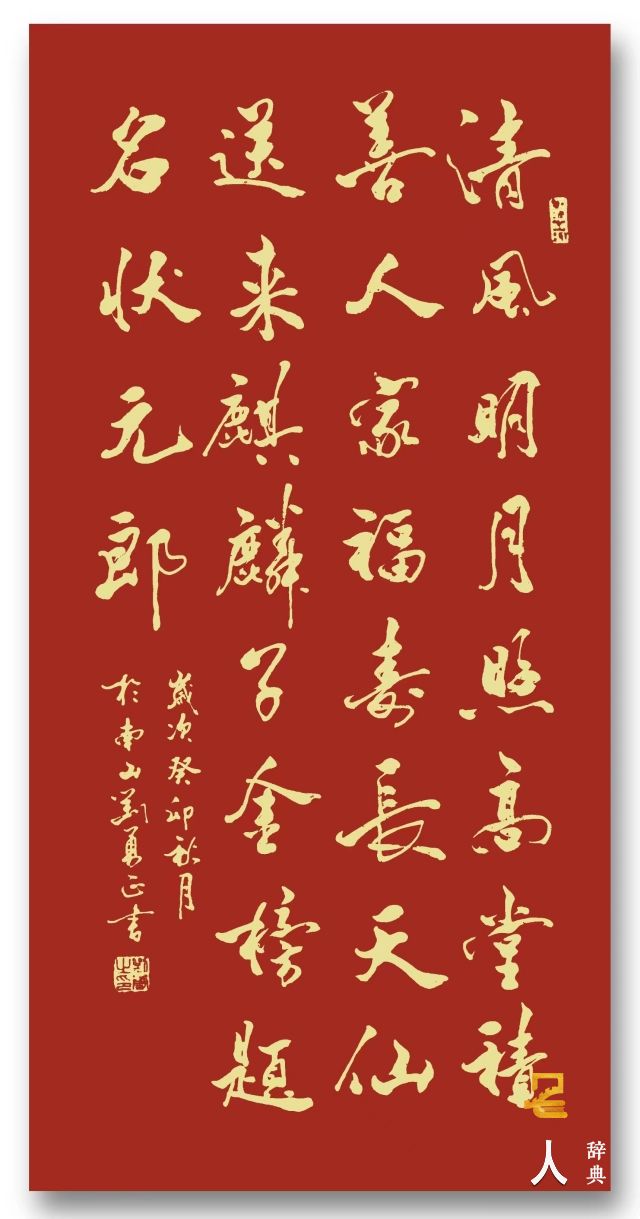 清風明月照高堂積
善人家福寿長天仙
送来麒麟子金榜題
名状元郎
歲次癸卯秋月
於南山劉勇正書
人
辞典